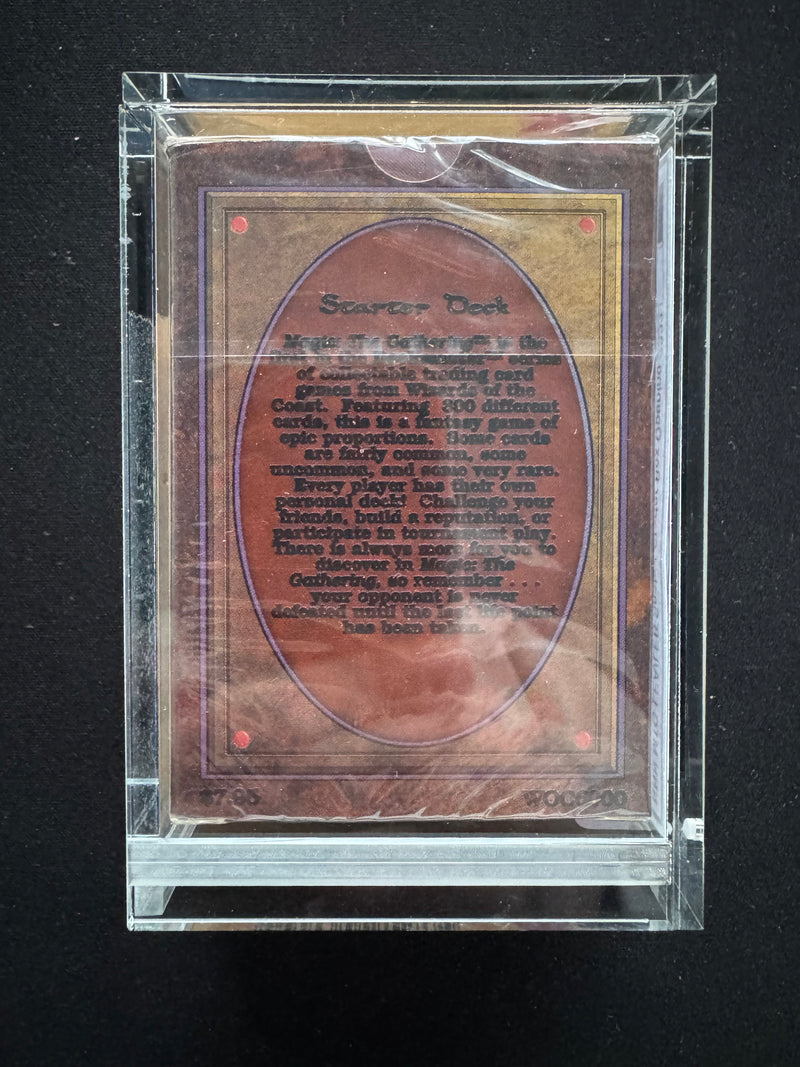 Starter Deck
Magic: The Gathering™ is the
first of the Deckmaster™ series
of collectable trading card
games from Wizards of the
Coast. Featuring 300 different
cards, this is a fantasy game of
epic proportions. Some cards
are fairly common, some
uncommon, and some very rare.
Every player has their own
personal deck! Challenge your
friends, build a reputation, or
participate in tournament play.
There is always more for you to
discover in Magic: The
Gathering, so remember . . .
your opponent is never
defeated until the last life point
has been taken.
$7.95